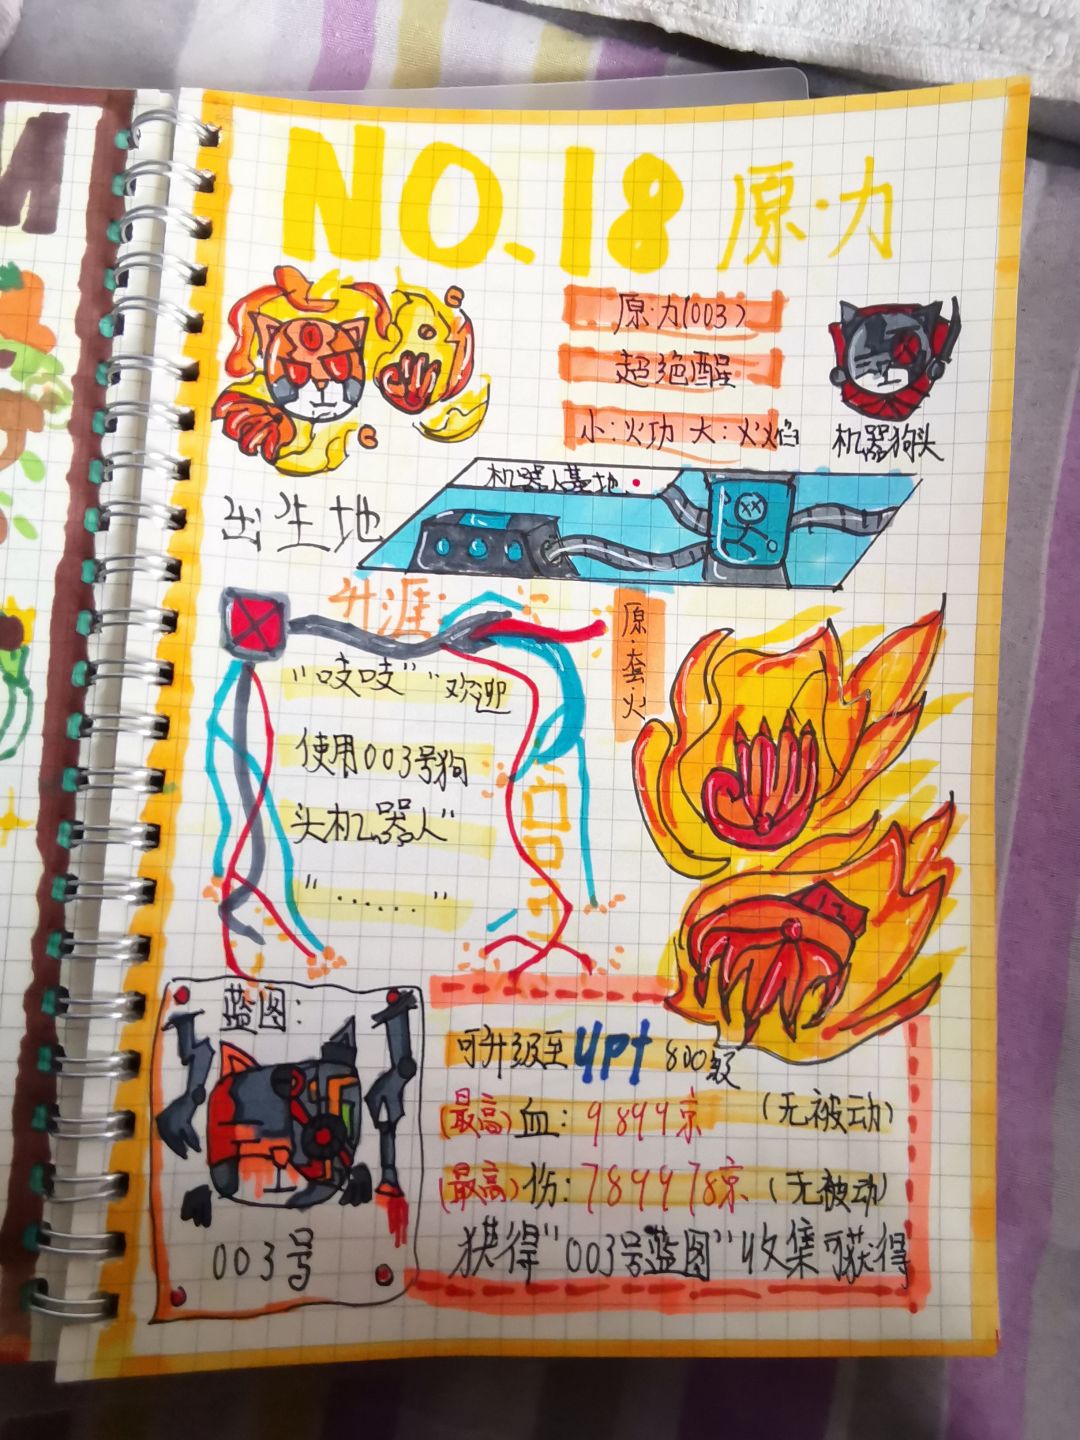 NO.18 原·力
原·力(003)
超绝醒
小:火功 大:火焰
机器狗头
机器人基地.
出生地
升涯
原·套·火
"吱吱" "欢迎
使用003号狗
头机器人"
"······"
13
蓝图:
003号
可升级至 ypt 800级
(最高)血: 9899京 (无被动)
(最高)伤: 789978京 (无被动)
获得"003号蓝图"收集可获得